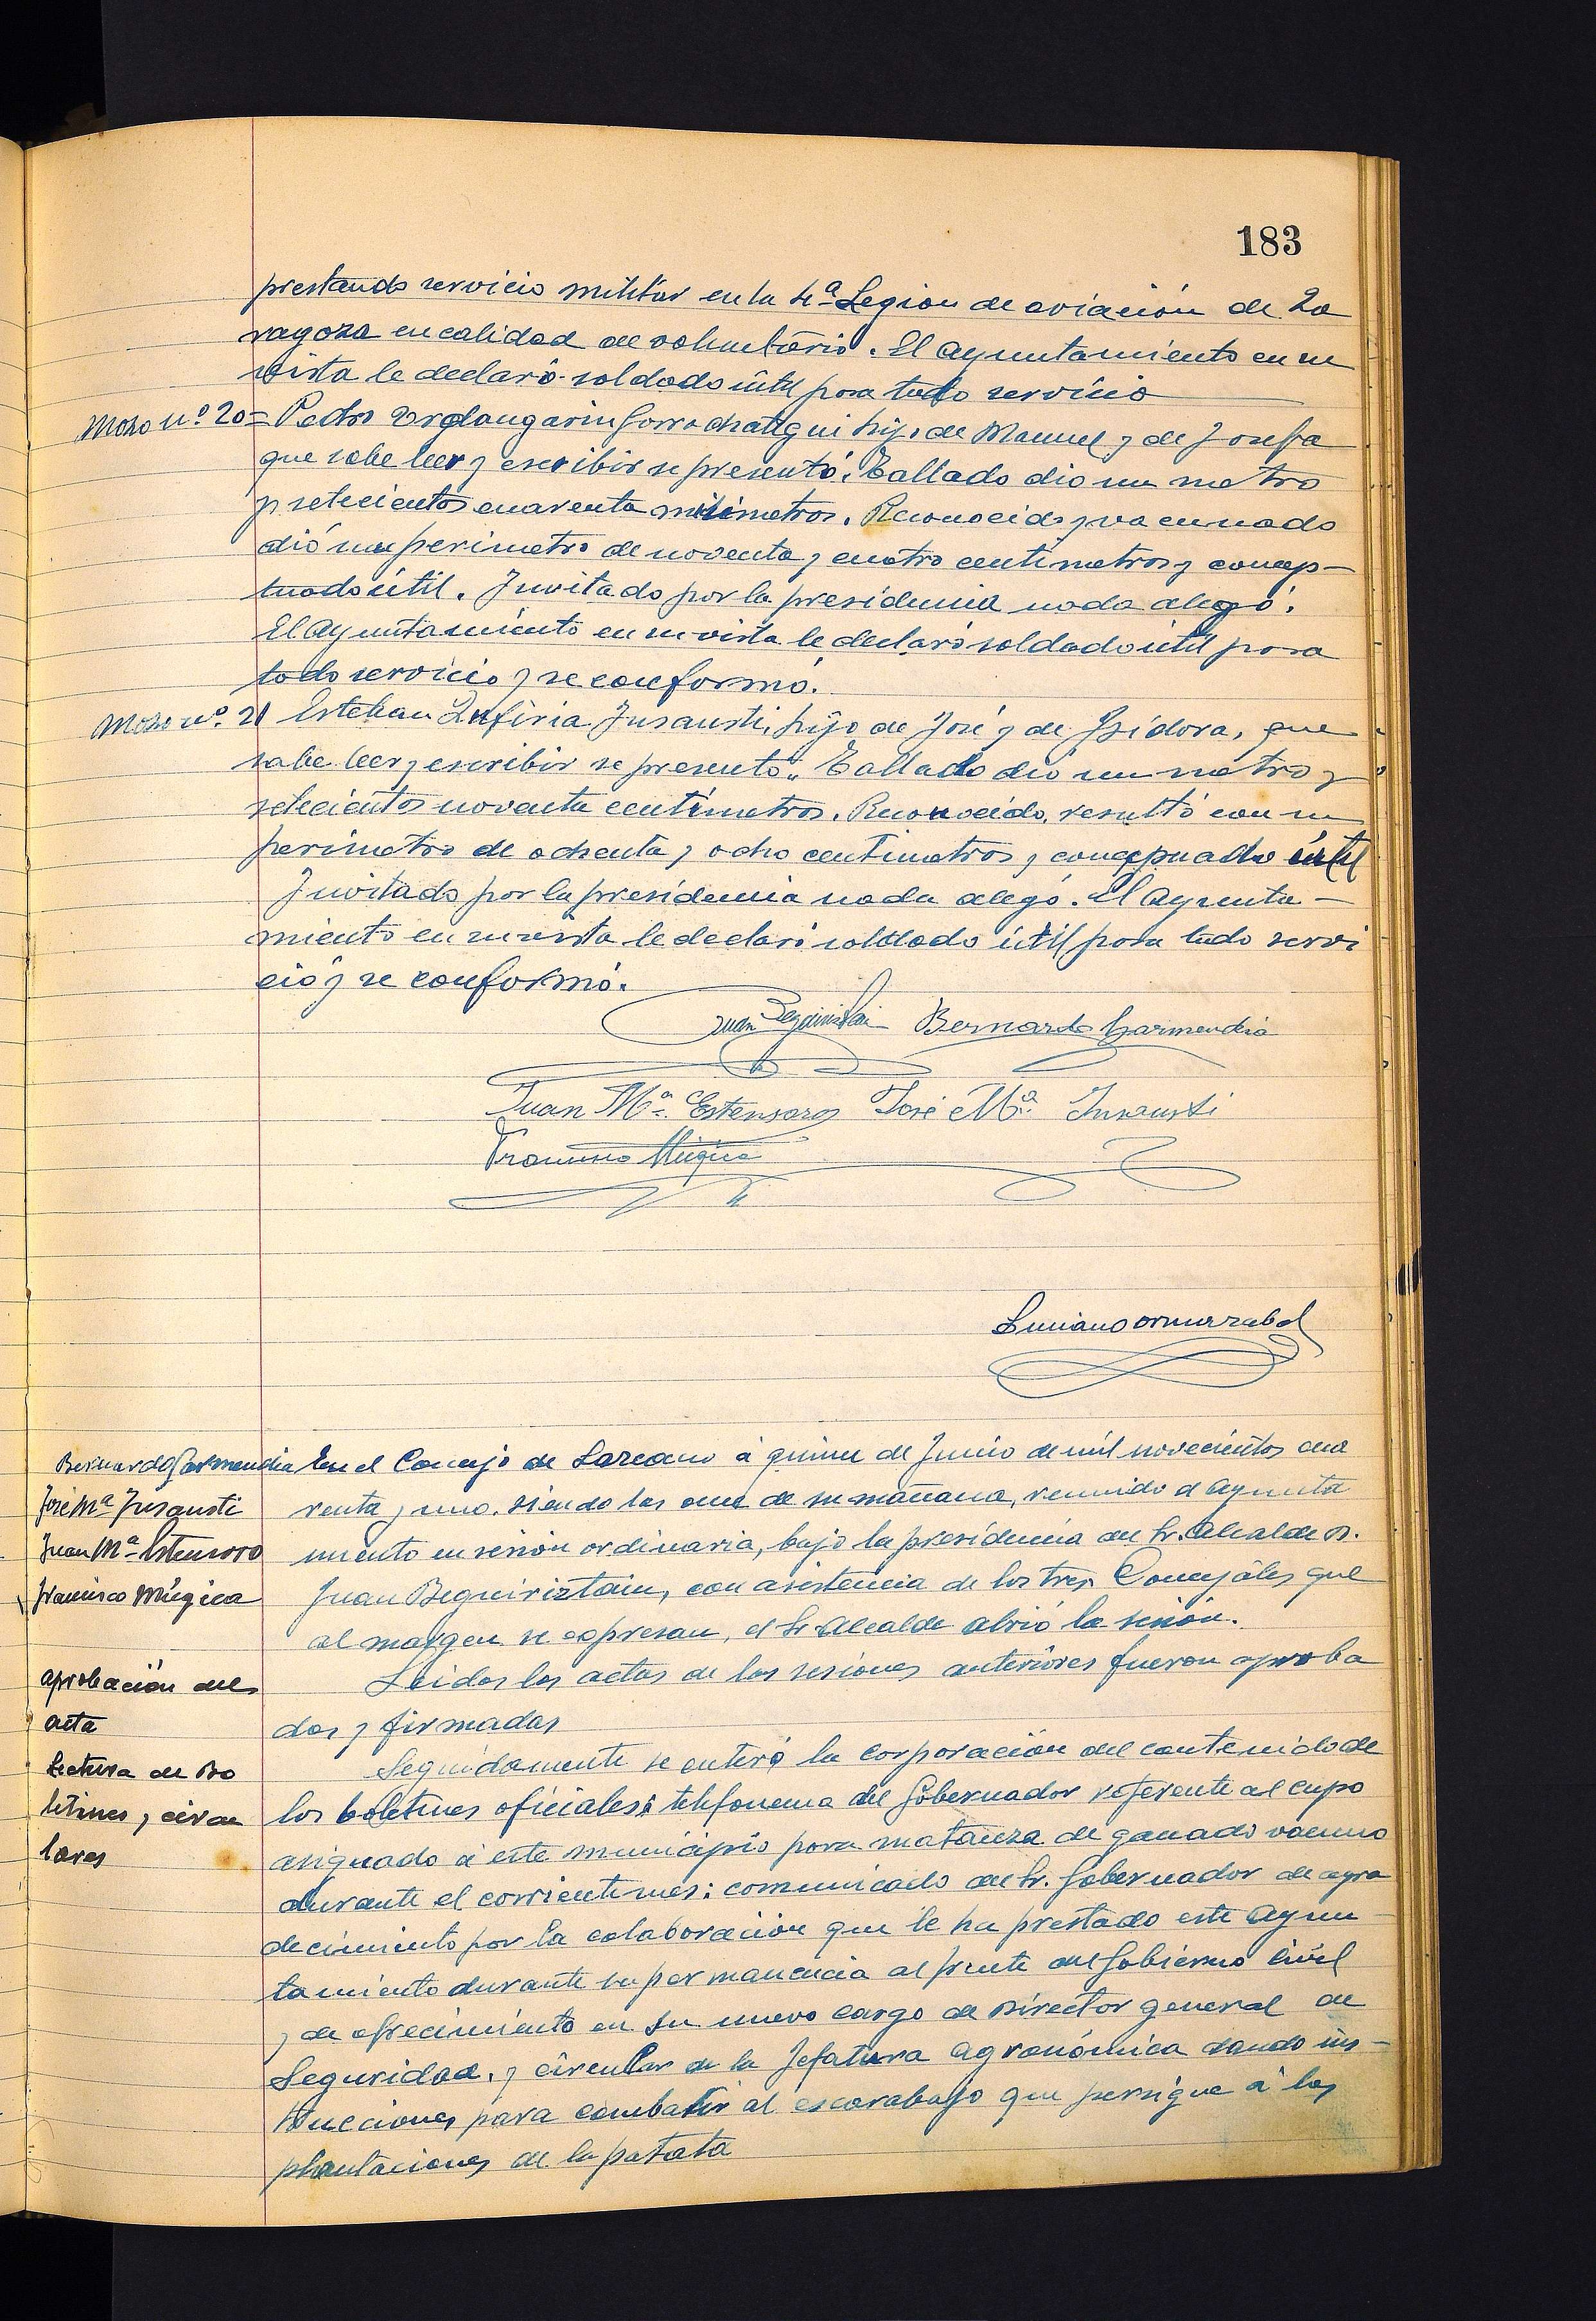 183
prestando servicio militar en la 4ª Legion de aviación de Za
ragoza en calidad de voluntario. El Ayuntamiento en su
vista le declaró soldado útil para todo servicio
Mozo nº 20= Pedro hijo de Manuel y de Josefa
que sabe leer y escribir se presentó. Tallado dio un metro
y setecientos cuarenta milimetros. Reconocido y vacunado
dió un perimetro de noventa y cuatro centimetros y concep-
tuado útil. Invitado por la presidencia nada alegó.
El Ayuntamiento en su vista le declaró soldado útil para
todo servicio y se conformó.
Mozo nº. 21 Esteban Zufiria Insausti, hijo de José y de Isidora, que
sabe leer y escribir se presentó. Tallado dió un metro y
setecientos noventa centímetros. Reconocido, resultó con un
perimetro de ochenta y ocho centimetros y conceptuado útil
Invitado por la presidencia nada alegó. El Ayunta-
miento en su vista le declaró soldado útil para todo servi
cio y se conformó.
Juan Beguiristain Bernardo Garmendia
Juan Mª. Estensoro José Mª. Insausti
Francisco Múgica
Luciano Ormazabal
Bernardo Garmendia
José Mª Insausti
Juan Mª Estensoro
Francisco Múgica
En el Concejo de Lazcano á quince de Junio de mil novecientos cua
renta y uno. siendo las once de su mañana, reunido el Ayunta
miento en sesión ordinaria, bajo la presidencia del Sr. Alcalde D.
Juan Beguiriztain, con asistencia de los tres Concejáles que
al margen se expresan, el Sr Alcalde abrió la sesión.
aprobación del
acta
Leidas las actas de las sesiones anteriores fueron aproba
das y firmadas
Lectura de Bo
letines y circu
lares
Seguidamente se enteró la corporación del contenido de
los boletines oficiales: telefonema del Gobernador referente al cupo
asignado á este municipio para matanza de ganado vacuno
durante el corriente mes: comunicado del Sr. Gobernador de agra
decimiento por la colaboración que le ha prestado este Ayun
tamiento durante su permanencia al frente del Gobierno civil
y de ofrecimiento en su nuevo cargo de Director general de
Seguridad, y circular de la Jefatura Agronómica dando ins-
trucciones para combatir al escarabajo que persigue á las
plantaciones de la patata